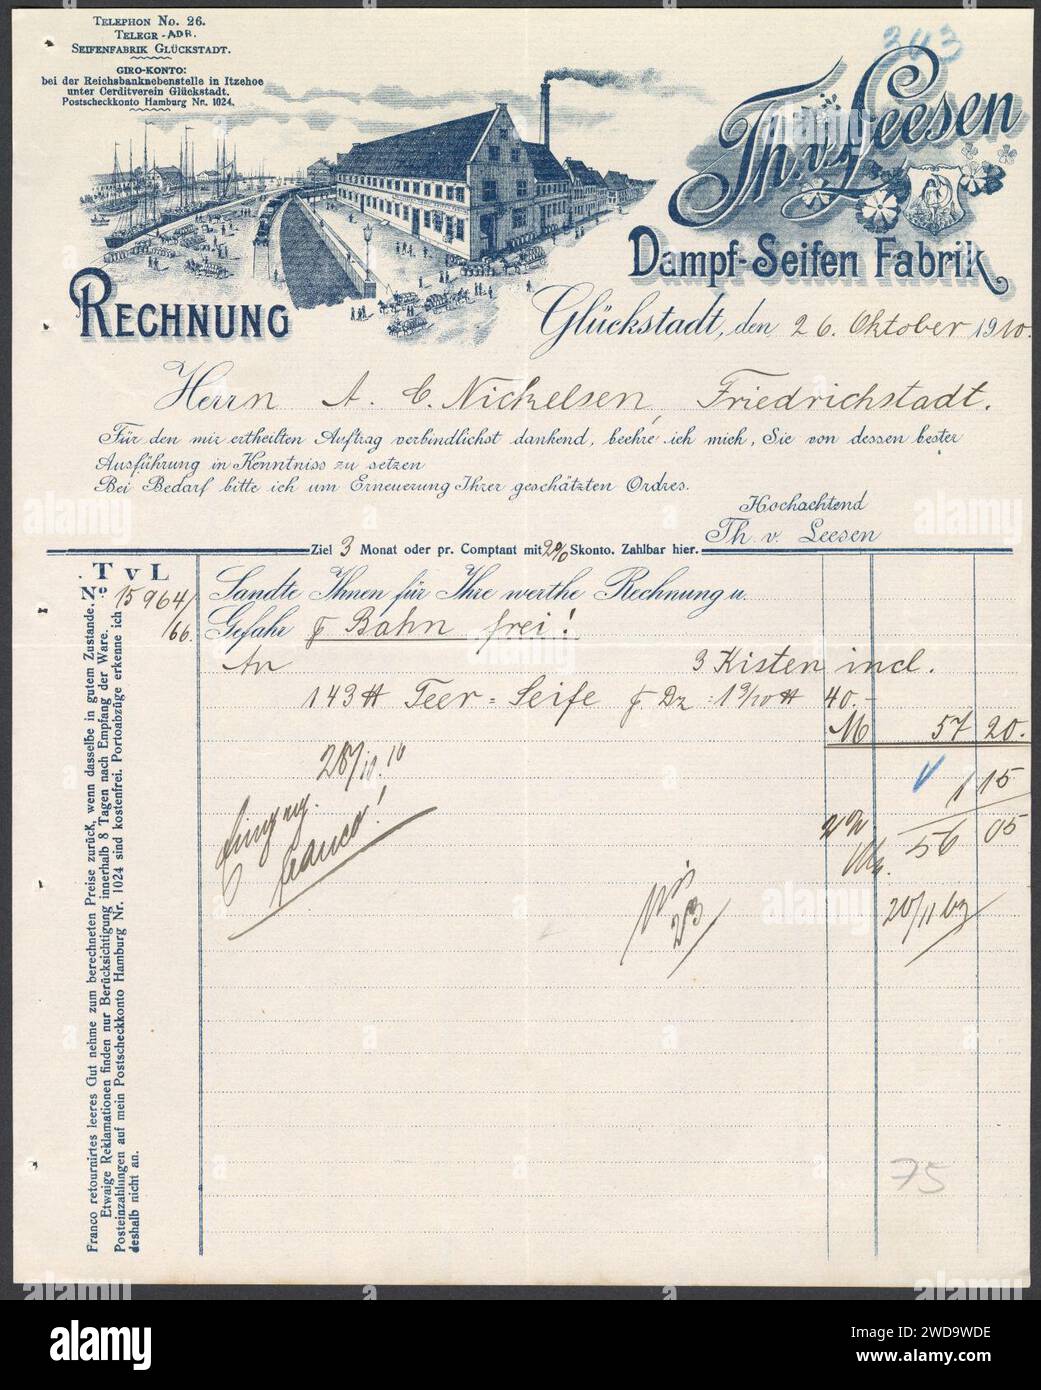 Telephon No. 26.
Telegr-Adr.
Seifenfabrik Glückstadt.
Giro-Konto:
bei der Reichsbanknebenstelle in Itzehoe
unter Cerditverein Glückstadt.
Postscheckkonto Hamburg Nr. 1024.
343
Th. v. Leesen
Dampf-Seifen Fabrik
Rechnung
Glückstadt, den 26. Oktober 1910.
Herrn A. C. Nickelsen, Friedrichstadt.
Für den mir ertheilten Auftrag verbindlichst dankend, beehre ich mich, Sie von dessen bester
Ausführung in Kenntniss zu setzen
Bei Bedarf bitte ich um Erneuerung Ihrer geschätzten Ordres.
Hochachtend
Th. v. Leesen
Ziel 3 Monat oder pr. Comptant mit 2% Skonto. Zahlbar hier.
T v L
No. 15964/
/66.
Sandte Ihnen für Ihre werthe Rechnung u.
Gefahr Bahn frei!
An 3 Kisten incl.
143 Teer-Seife 40.-
M 57 20.
28/10.10
franco!
1 15
56 05
20/11
75
Franco retournirtes leeres Gut nehme zum berechneten Preise zurück, wenn dasselbe in gutem Zustande.
Etwaige Reklamationen finden nur Berücksichtigung innerhalb 8 Tagen nach Empfang der Ware.
Posteinzahlungen auf mein Postscheckkonto Hamburg Nr. 1024 sind kostenfrei. Portoabzüge erkenne ich
deshalb nicht an.
alamy
Image ID: 2WD9WDE
www.alamy.com